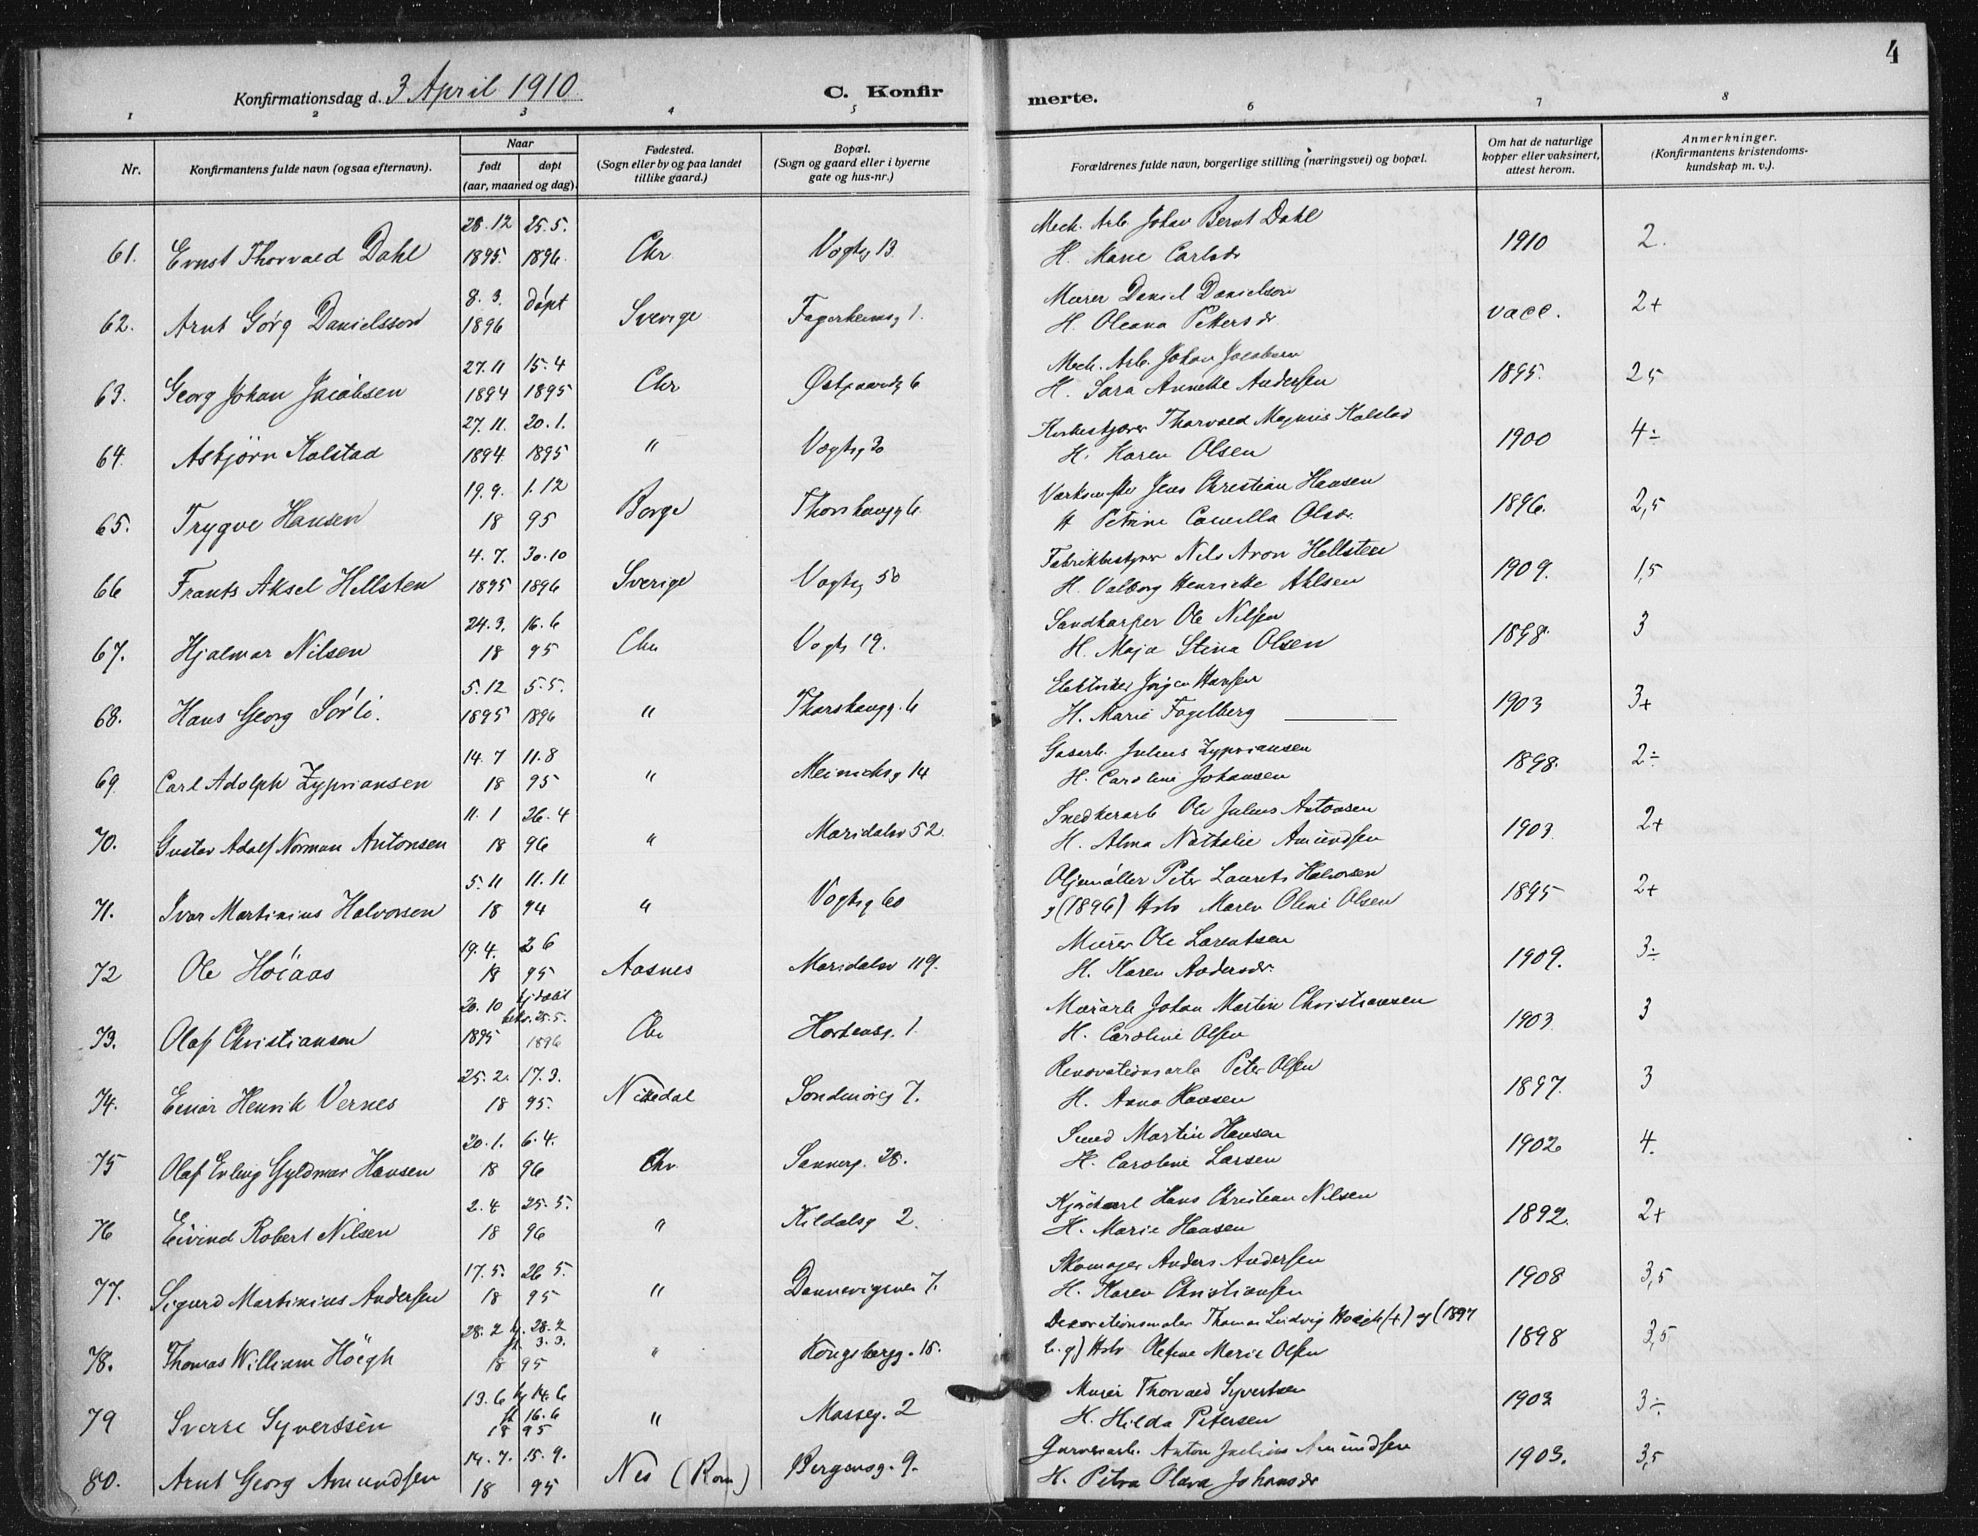 4
Konfirmationsdag d. 3 April 1910. C. Konfirmerte.
1 2 3 4 5 6 7 8
Nr. Konfirmantens fulde navn (ogsaa efternavn). Naar født døpt (aar, maaned og dag). Fødested. (Sogn eller by og paa landet tillike gaard.) Bopæl. (Sogn og gaard eller i byerne gate og hus-nr.) Forældrenes fulde navn, borgerlige stilling (næringsvei) og bopæl. Om hat de naturlige kopper eller vaksinert, attest herom. Anmerkninger. (Konfirmantens kristendomskundskap m. v.).
28.12 25.5. Mech. Arb. Johan Bernt Dahl
61. Ernst Thorvald Dahl 1895. 1896. Chr. Vogtsg 13. H. Marie Carlsdr 1910 2.
8. 3. døpt Murer Daniel Danielson
62. Arnt Görg Danielsson 1896 Sverige Fagerheimsg 1. H. Oleana Pettersdr. vacc. 2+
27.11 15.4 Mech. Arb. Johan Jacobsen
63. Georg Johan Jacobsen 1894 1895 Chr Østgaardsg 6 H. Sara Annette Andersen 1895. 25
27.11. 20.1. Kirketjener Thorvald Magnus Kolstad
64. Asbjørn Kolstad 1894 1895 " Vogtsg 30 H. Karen Olsen 1900 4÷
19.9. 1.12 Jens Christian Hansen
65. Trygve Hansen 18 95 Borge Thorshaugg 6. H Petrine Camilla Olsdr. 1896. 2,5
4.7. 30.10 Fabrikbestyrer Nils Aron Hellsten
66 Frants Aksel Hellsten 1895 1896 Sverige Vogtsg 50 H. Valborg Henriette Ahlsen 1909. 1,5
24.3. 16.6 Ole Nilsen
67. Hjalmar Nilsen 18 95 Chr Vogts 19. H. Maja Stina Olsen 1898. 3
5.12 5.5. Elektriker Jörgen Hansen
68. Hans Georg Sörli. 1895 1896 " Thorshaugg. 6 H. Marie Fogelberg 1903 3+
14.7 11.8 Gasarb. Julius Zypriansen
69. Carl Adolph Zypriansen 18 95 " Meinichsg 14 H. Caroline Johansen 1898. 2÷
11.1 26.4 Snedkerarb Ole Julius Antonsen
70. Gustav Adolf Norman Antonsen 18 96 " Maridalsv 52. H. Alma Nathalie Amundsen 1903. 2+
5.11 11.11 Oljemøller Peter Laurets Halvorsen
71. Ivar Martinius Halvorsen 18 94 " Vogtsg 60 g (1896) Hstr Maren Oline Olsen 1895 2+
19.4. 2 6 Murer Ole Lorentsen
72 Ole Höiaas 18 95 Aasnes Maridalsv 119. H. Karen Andersdr. 1909. 3÷
20.10 hj.døbt bekr. 25.5. Murarb Johan Martin Christiansen
73. Olaf Christiansen 1895 1896 Chr Hortensg. 1. H. Caroline Olsen 1903 3
25.2. 17.3. Renovationsarb Peter Olsen
74. Einar Henrik Vernes 18 95. Nittedal Søndmørsg 7. H. Anna Hansen 1897. 3
20.1. 6.4. Smed Martin Hansen
75 Olaf Erling Gyldmar Hansen 18 96 Chr Sannerg. 28. H. Caroline Larsen 1902 4.
2.4. 25.5. Hans Christian Nilsen
76 Eivind Robert Nilsen 18 96 " Kildalsg 2. H. Marie Hansen 1892. 2+
17.5. 26 5. Skomager Anders Andersen
77. Sigurd Martinius Andersen 18 95 " Dannevigsvei 7. H. Karen Christiansen 1908 3,5
28.2 hj. 28.2 st. 3.3. Dekorationsmaler Thomas Ludvig Höegh (+) g (1897
78. Thomas William Höegh 18 95 " Kongsbergg. 15. b.g) Hstr Olefine Marie Olsen 1898 3,5
13.6 hj 14.6 st 16.6 Murer Thorvald Syvertsen
79 Sverre Syverssen 18 95 " Mosseg. 2 H. Hilda Petersen 1903 3÷
14.7. 15.9. Garverarb. Anton Julius Amundsen
80. Arnt Georg Amundsen 18 95 Nes (Rom) Bergensg. 9. H. Petra Olava Johansdr 1903. 3,5